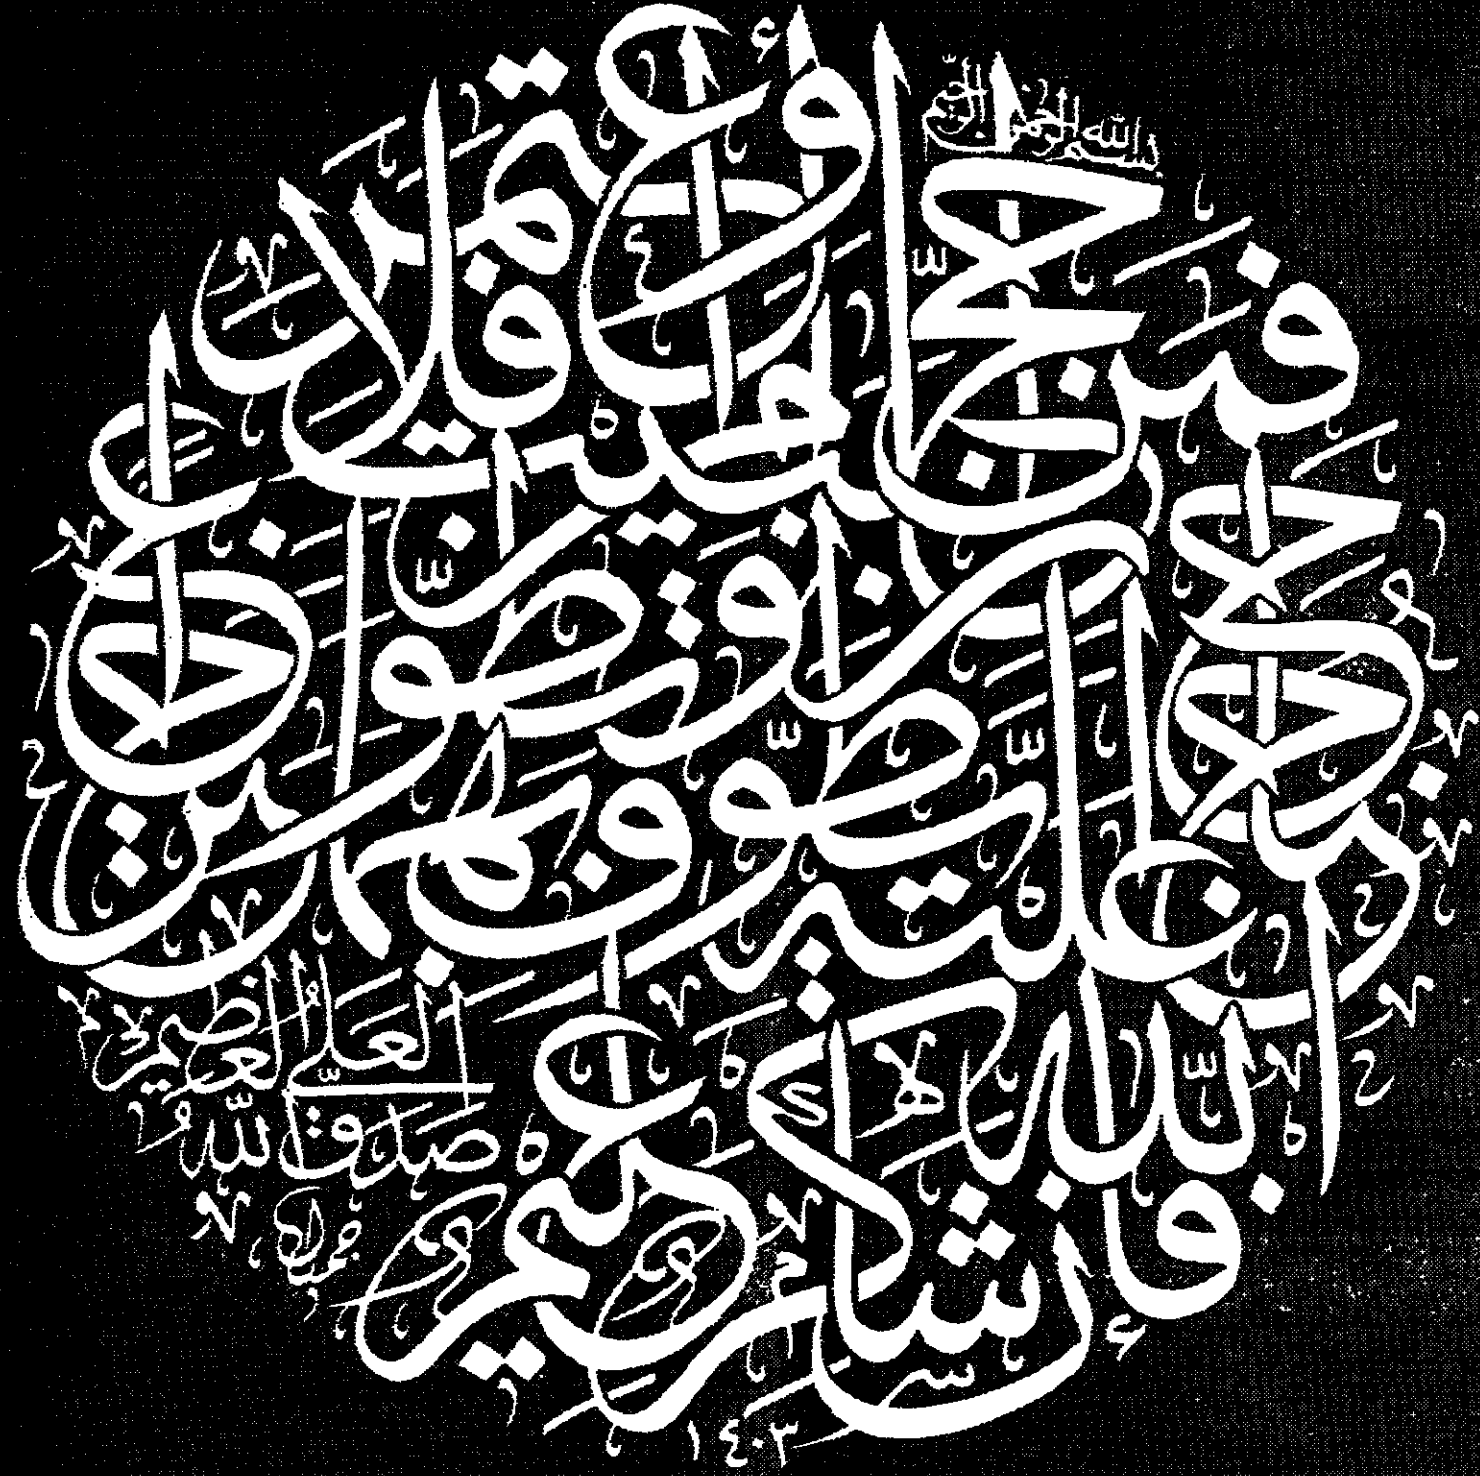 بسم الله الرحمن الرحيم
فَمَنْ حَجَّ الْبَيْتَ أَوِ اعْتَمَرَ فَلَا
جُنَاحَ عَلَيْهِ أَنْ يَطَّوَّفَ بِهِمَا
وَمَنْ تَطَوَّعَ خَيْرًا
فَإِنَّ اللّٰهَ شَاكِرٌ عَلِيمٌ
صدق الله العلي العظيم
١٤٠٣